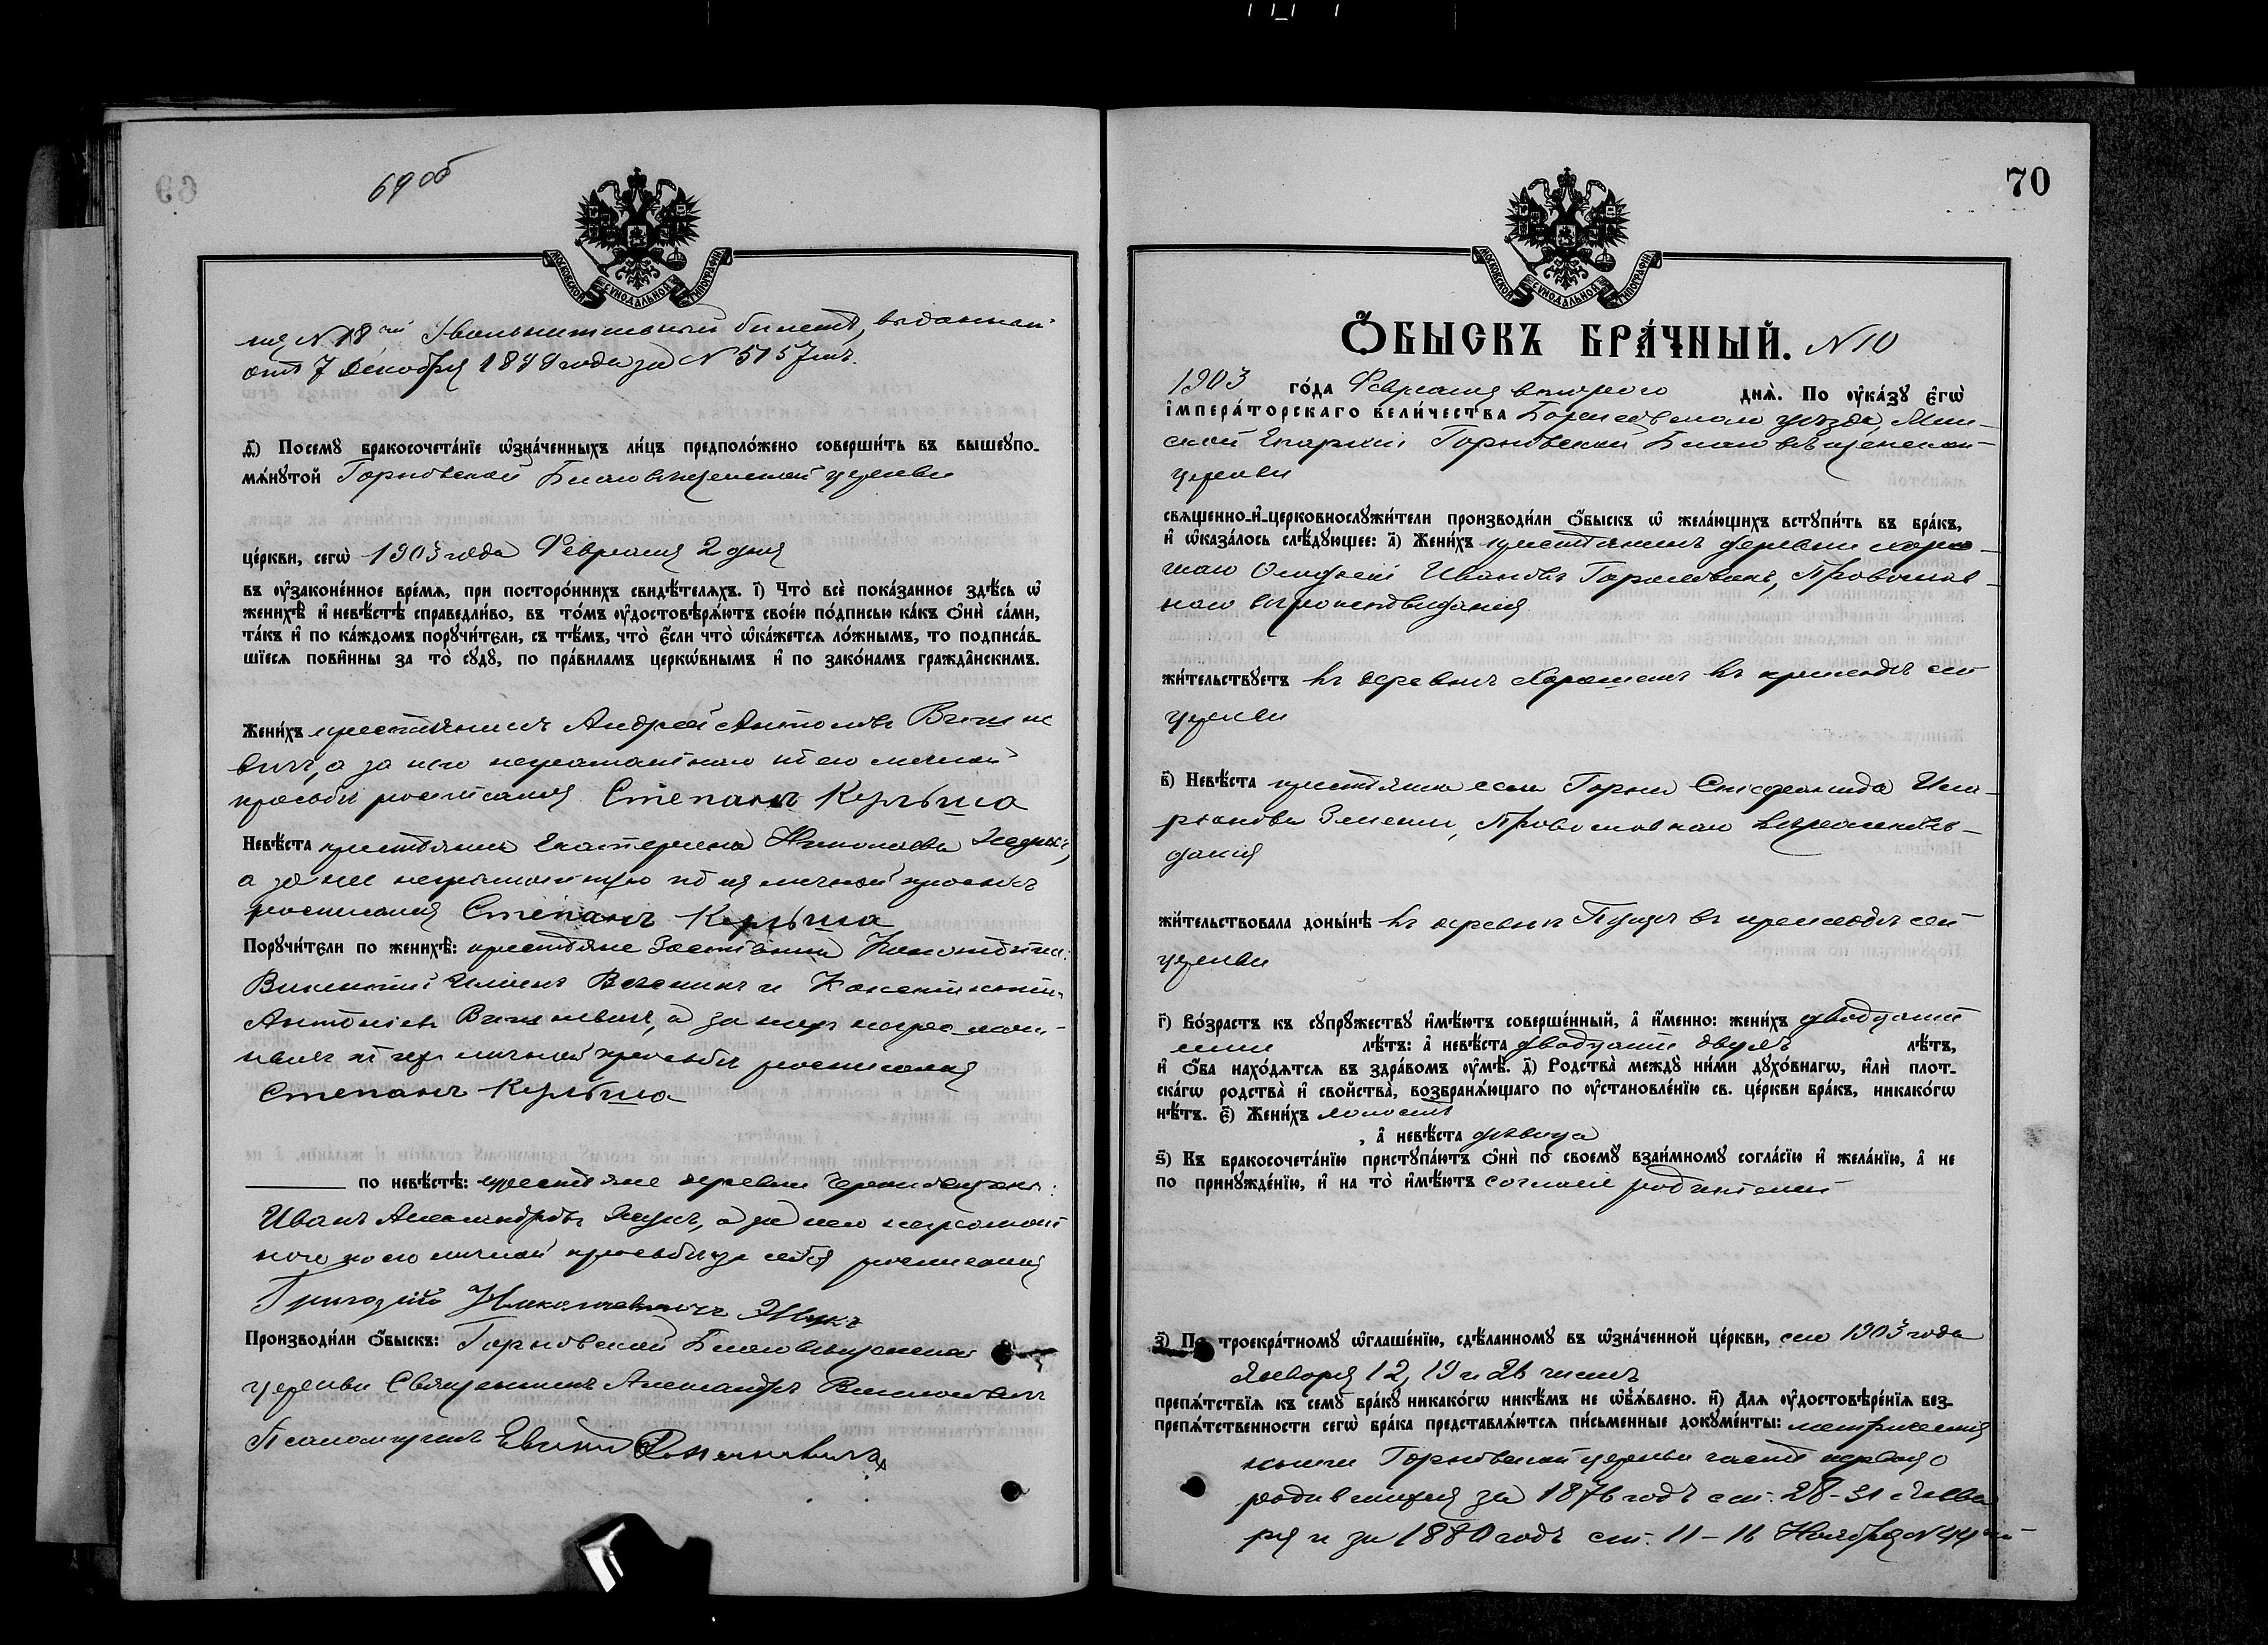 69
69 об
МОСКОВСКОЙ СУНОДАЛЬНОЙ ТИПОГРАФІИ
ря N 18 й Увольнительный билетъ, выданный
отъ 7 Декабря 1899 года за N 5157мъ.
д҃) Посемꙋ бракосочета́нїе ѡ҆зна́ченныхъ ли́цъ предполо́жено соверши́ть въ вышеꙋпо-
мѧ́нꙋтой Горновской Благовѣщенской церкви
це́ркви, сегѡ̀ 1903 года Февраля 2 дня
въ ᲂу҆законе́нное вре́мѧ, при посторо́ннихъ свидѣ́телѧхъ. і҃) Что̀ всѐ пока́занное здѣ́сь ѡ҆
женихѣ̀ и҆ невѣ́стѣ справедли́во, въ то́мъ ᲂу҆достовѣрѧ́ютъ свое́ю по́дписью ка́къ ѻ҆нѝ са́ми,
та́къ и҆ по ка́ждомъ порꙋчи́тели, съ тѣ́мъ, что̀ є҆́сли что̀ ѡ҆ка́жетсѧ ло́жнымъ, то подписа́в-
шїесѧ пови́нны за то̀ сꙋдꙋ̀, по пра́виламъ церко́внымъ и҆ по зако́намъ гражда́нскимъ.
Жени́хъ крестьянинъ Андрей Антоновъ Вишне
вичъ, а за него неграмотнаго по его личной
просьбѣ росписался Степанъ Кульша
Невѣ́ста крестьянка Екатерина Николаева
а за нее неграмотную по ея личной просьбѣ
росписался Степанъ Кульша
Порꙋчи́тели по женихѣ̀: крестьяне Застѣнка
Викентій и Константинъ
Антоніевъ Вишневичъ, а за нихъ неграмот-
ныхъ по ихъ личной просьбѣ росписался
Степанъ Кульша
по невѣ́стѣ: крестьяне деревни
Иванъ Александровъ Жукъ, а за него неграмот
наго по его личной просьбѣ и за себя росписался
Григорій Николаевичъ Жукъ
Производи́ли ѻ҆́быскъ: Горновской Благовѣщенской
церкви Священникъ Александръ
Псаломщикъ
70
МОСКОВСКОЙ СУНОДАЛЬНОЙ ТИПОГРАФІИ
Ѻ҆́БЫСКЪ БРА́ЧНЫЙ. N 10
1903 го́да Февраля второго днѧ̀. По ᲂу҆ка́зꙋ є҆гѡ̀
і҆мпера́торскагѡ вели́чества Борисовскаго уѣзда, Мин-
ской Епархіи Горновской Благовѣщенской
церкви
свѧще́нно-и҆-церковнослꙋжи́тели производи́ли ѻ҆́быскъ ѡ҆ жела́ющихъ встꙋпи́ть въ бра́къ,
и҆ ѡ҆каза́лось слѣ́дꙋющее: а҃) Жени́хъ крестьянинъ деревни
Ивановъ Православ-
наго вѣроисповѣданія
жи́тельствꙋетъ въ деревнѣ въ приходѣ сей
церкви
в҃) Невѣ́ста крестьянка села Горни Ила-
ріонова Православнаго вѣроисповѣ-
данія
жи́тельствовала доны́нѣ въ деревнѣ въ приходѣ сей
церкви
г҃) Во́зрастъ къ сꙋпрꙋ́жествꙋ и҆мѣ́ютъ соверше́нный, а҆ и҆́менно: жени́хъ двадцати
семи лѣ́тъ: а҆ невѣ́ста двадцати двухъ лѣ́тъ,
и҆ ѻ҆́ба нахо́дѧтсѧ въ здра́вомъ ᲂу҆мѣ̀. д҃) Родства̀ междꙋ̀ ни́ми дꙋхо́внагѡ, и҆лѝ плот-
ска́гѡ родства̀ и҆ сво́йства̀, возбранѧ́ющаго по ᲂу҆становле́нїю св. це́ркви бра́къ, никако́гѡ
нѣ́тъ. є҃) Жени́хъ холостъ
, а҆ невѣ́ста дѣвица
ѕ҃) Къ бракосочета́нїю пристꙋпа́ютъ ѻ҆нѝ по своемꙋ̀ взаи́мномꙋ согла́сїю и҆ жела́нїю, а҆ не
по принꙋжде́нїю, и҆ на то̀ и҆мѣ́ютъ согласіе родителей
з҃) По троекра́тномꙋ ѡ҆глаше́нїю, сдѣ́ланномꙋ въ ѡ҆зна́ченной це́ркви, сего 1903 года
Января 12, 19 и 26 чиселъ
препѧ́тствїѧ къ семꙋ̀ бра́кꙋ никако́гѡ никѣ́мъ не ѡ҆б̾ѧ́влено. и҃) Длѧ ᲂу҆достовѣре́нїѧ без-
препѧ́тственности сегѡ̀ бра́ка представлѧ́ютсѧ пи́сьменные докꙋме́нты: метрическія
книги Горновской церкви часть первая о
родившихся за 1876 годъ ст. 28-31 Янва
ря и за 1880 годъ ст. 11-16 Ноября N 44 й